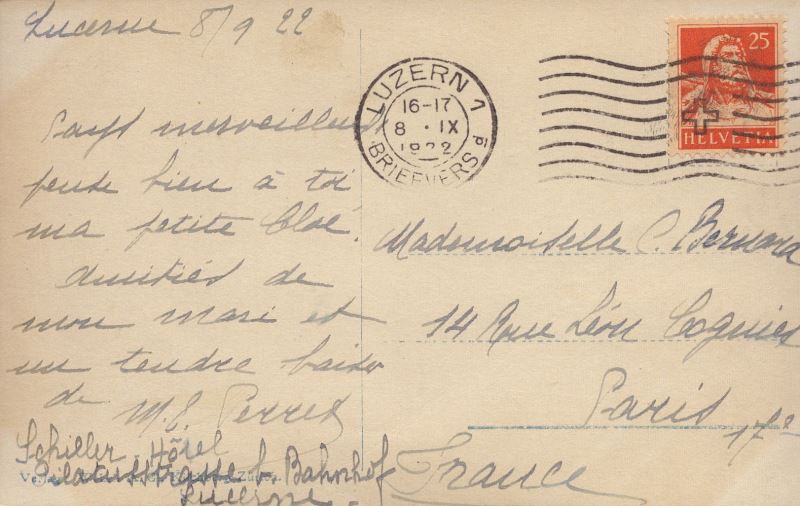 Lucerne 8/9 22
Pays merveilleux
pense bien à toi
ma petite Cloé.
Amitiés de
mon mari et
un tendre baiser
de M. E. Perret
Schiller-Hôtel
Pilatusstrasse b. Bahnhof
Lucerne.
LUZERN 1
16-17
8 · IX
1922
BRIEFVERS
25
HELVETIA
Mademoiselle C. Bernard
14 Rue Léon Cogniet
Paris 17e
France